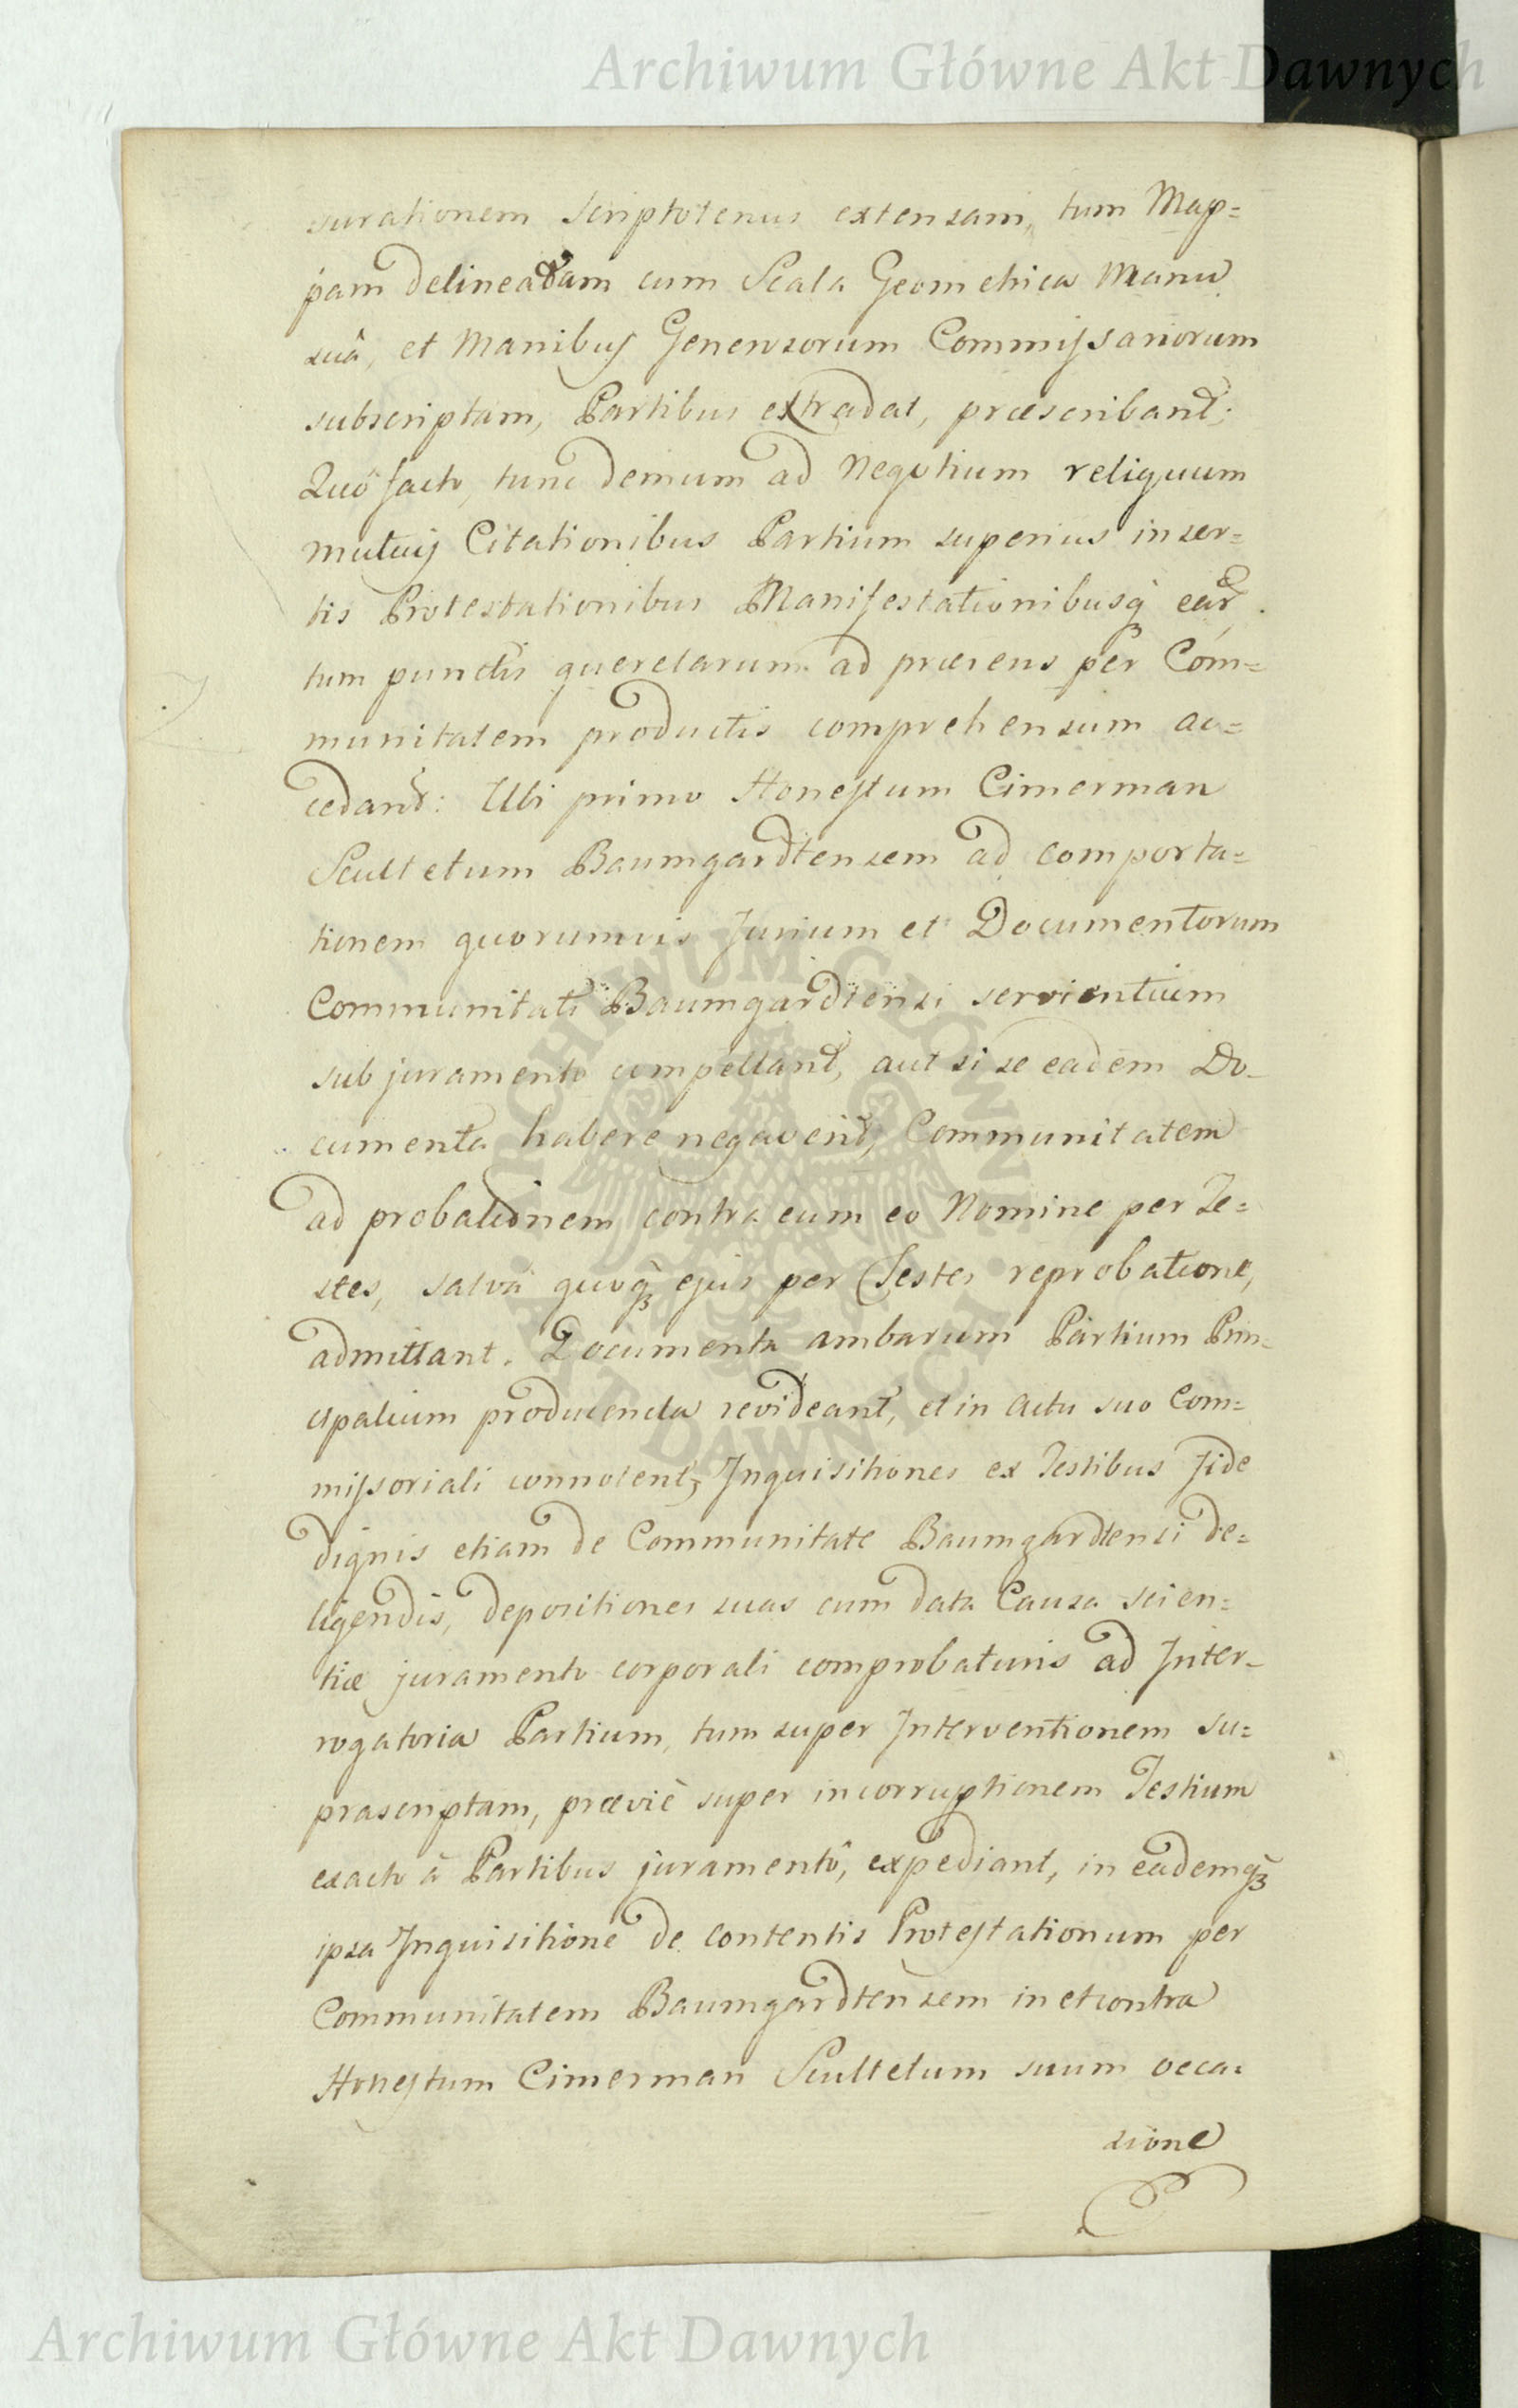 Archiwum Główne Akt Dawnych
surationem scriptotenus extensam, tum Map=
pam delineatam cum Scala Geometrica Manu
suâ, et Manibus Generosorum Commissariorum
subscriptam, Partibus extradat, præscribant:
Quô facto, tunc demum ad Negotium reliquum
mutuis Citationibus Partium superius inser=
tis Protestationibus Manifestationibusq́ȝ ear̃.
tum punctis querelarum ad præsens per Com=
munitatem productis comprehensum ac=
cedant: Ubi primo Honestum Cimerman
Scultetum Baumgardtensem ad comporta=
tionem quorumvis Jurium et Documentorum
Communitati Baumgardtensi servientium
sub juramento compellant, aut si se eadem Do-
cumenta habere negaverit, Communitatem
ad probationem contra eum eo Nomine per Te=
stes, salvâ quoq́ȝ ejus per Testes reprobatione,
admittant. Documenta ambarum Partium Prin-
cipalium producenda revideant, et in Actu suo Com=
missoriali connotent, Inquisitiones ex Testibus fide
dignis etiam de Communitate Baumgardtensi de=
ligendis, depositiones suas cum data Causa scien=
tiæ juramento corporali comprobaturis ad Inter-
rogatoria Partium, tum super Interventionem su=
prascriptam, præviè super incorruptionem Testium
exacto à Partibus juramentô, expediant, in eademq́ȝ
ipsa Inquisitione de contentis Protestationum per
Communitatem Baumgardtensem in et contra
Honestum Cimerman Scultetum suum occa=
sione
ARCHIWUM GŁÓWNE · AKT DAWNYCH ·
Archiwum Główne Akt Dawnych